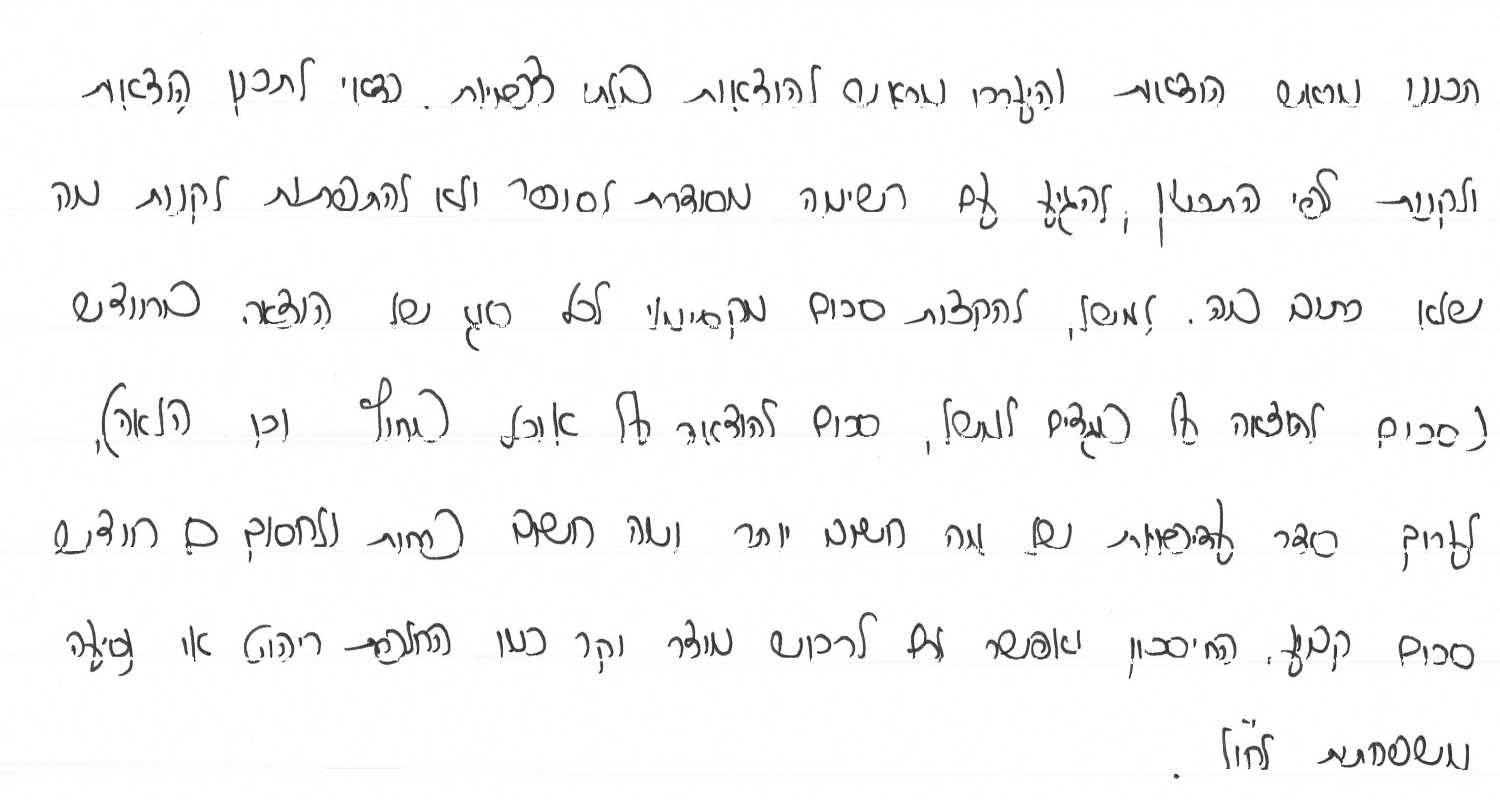 תכננו מראש הוצאות והיערכו מראש להוצאות בלתי צפויות. כדאי לתכנן הוצאות
ולקנות לפי התכנון, להגיע עם רשימה מסודרת לסופר ולא להתפתות לקנות מה
שלא כתוב בה. למשל, להקצות סכום מקסימלי לכל סוג של הוצאה בחודש
(סכום להוצאה על בגדים למשל, סכום להוצאה על אוכל בחוץ וכן הלאה),
לערוך סדר עדיפויות של מה חשוב יותר ומה חשוב פחות ולחסוך כל חודש
סכום קבוע. החיסכון יאפשר גם לרכוש מוצר יקר כמו החלפת ריהוט או נסיעה
משפחתית לחו"ל.